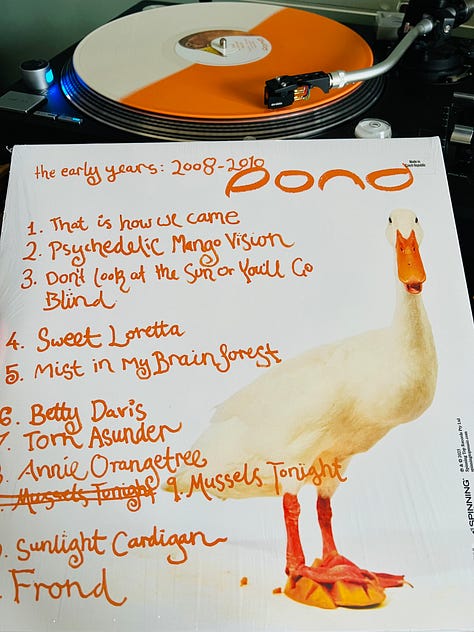 the early years: 2008-2010
Pond
Made in
Czech Republic
1. That is how we came
2. Psychedelic Mango Vision
3. Don't look at the Sun or You'll Go
Blind
4. Sweet Loretta
5. Mist in My Brainforest
6. Betty Davis
Torn Asunder
Annie Orangetree
Mussels Tonight 9. Mussels Tonight
Sunlight Cardigan
Frond
SPINNING